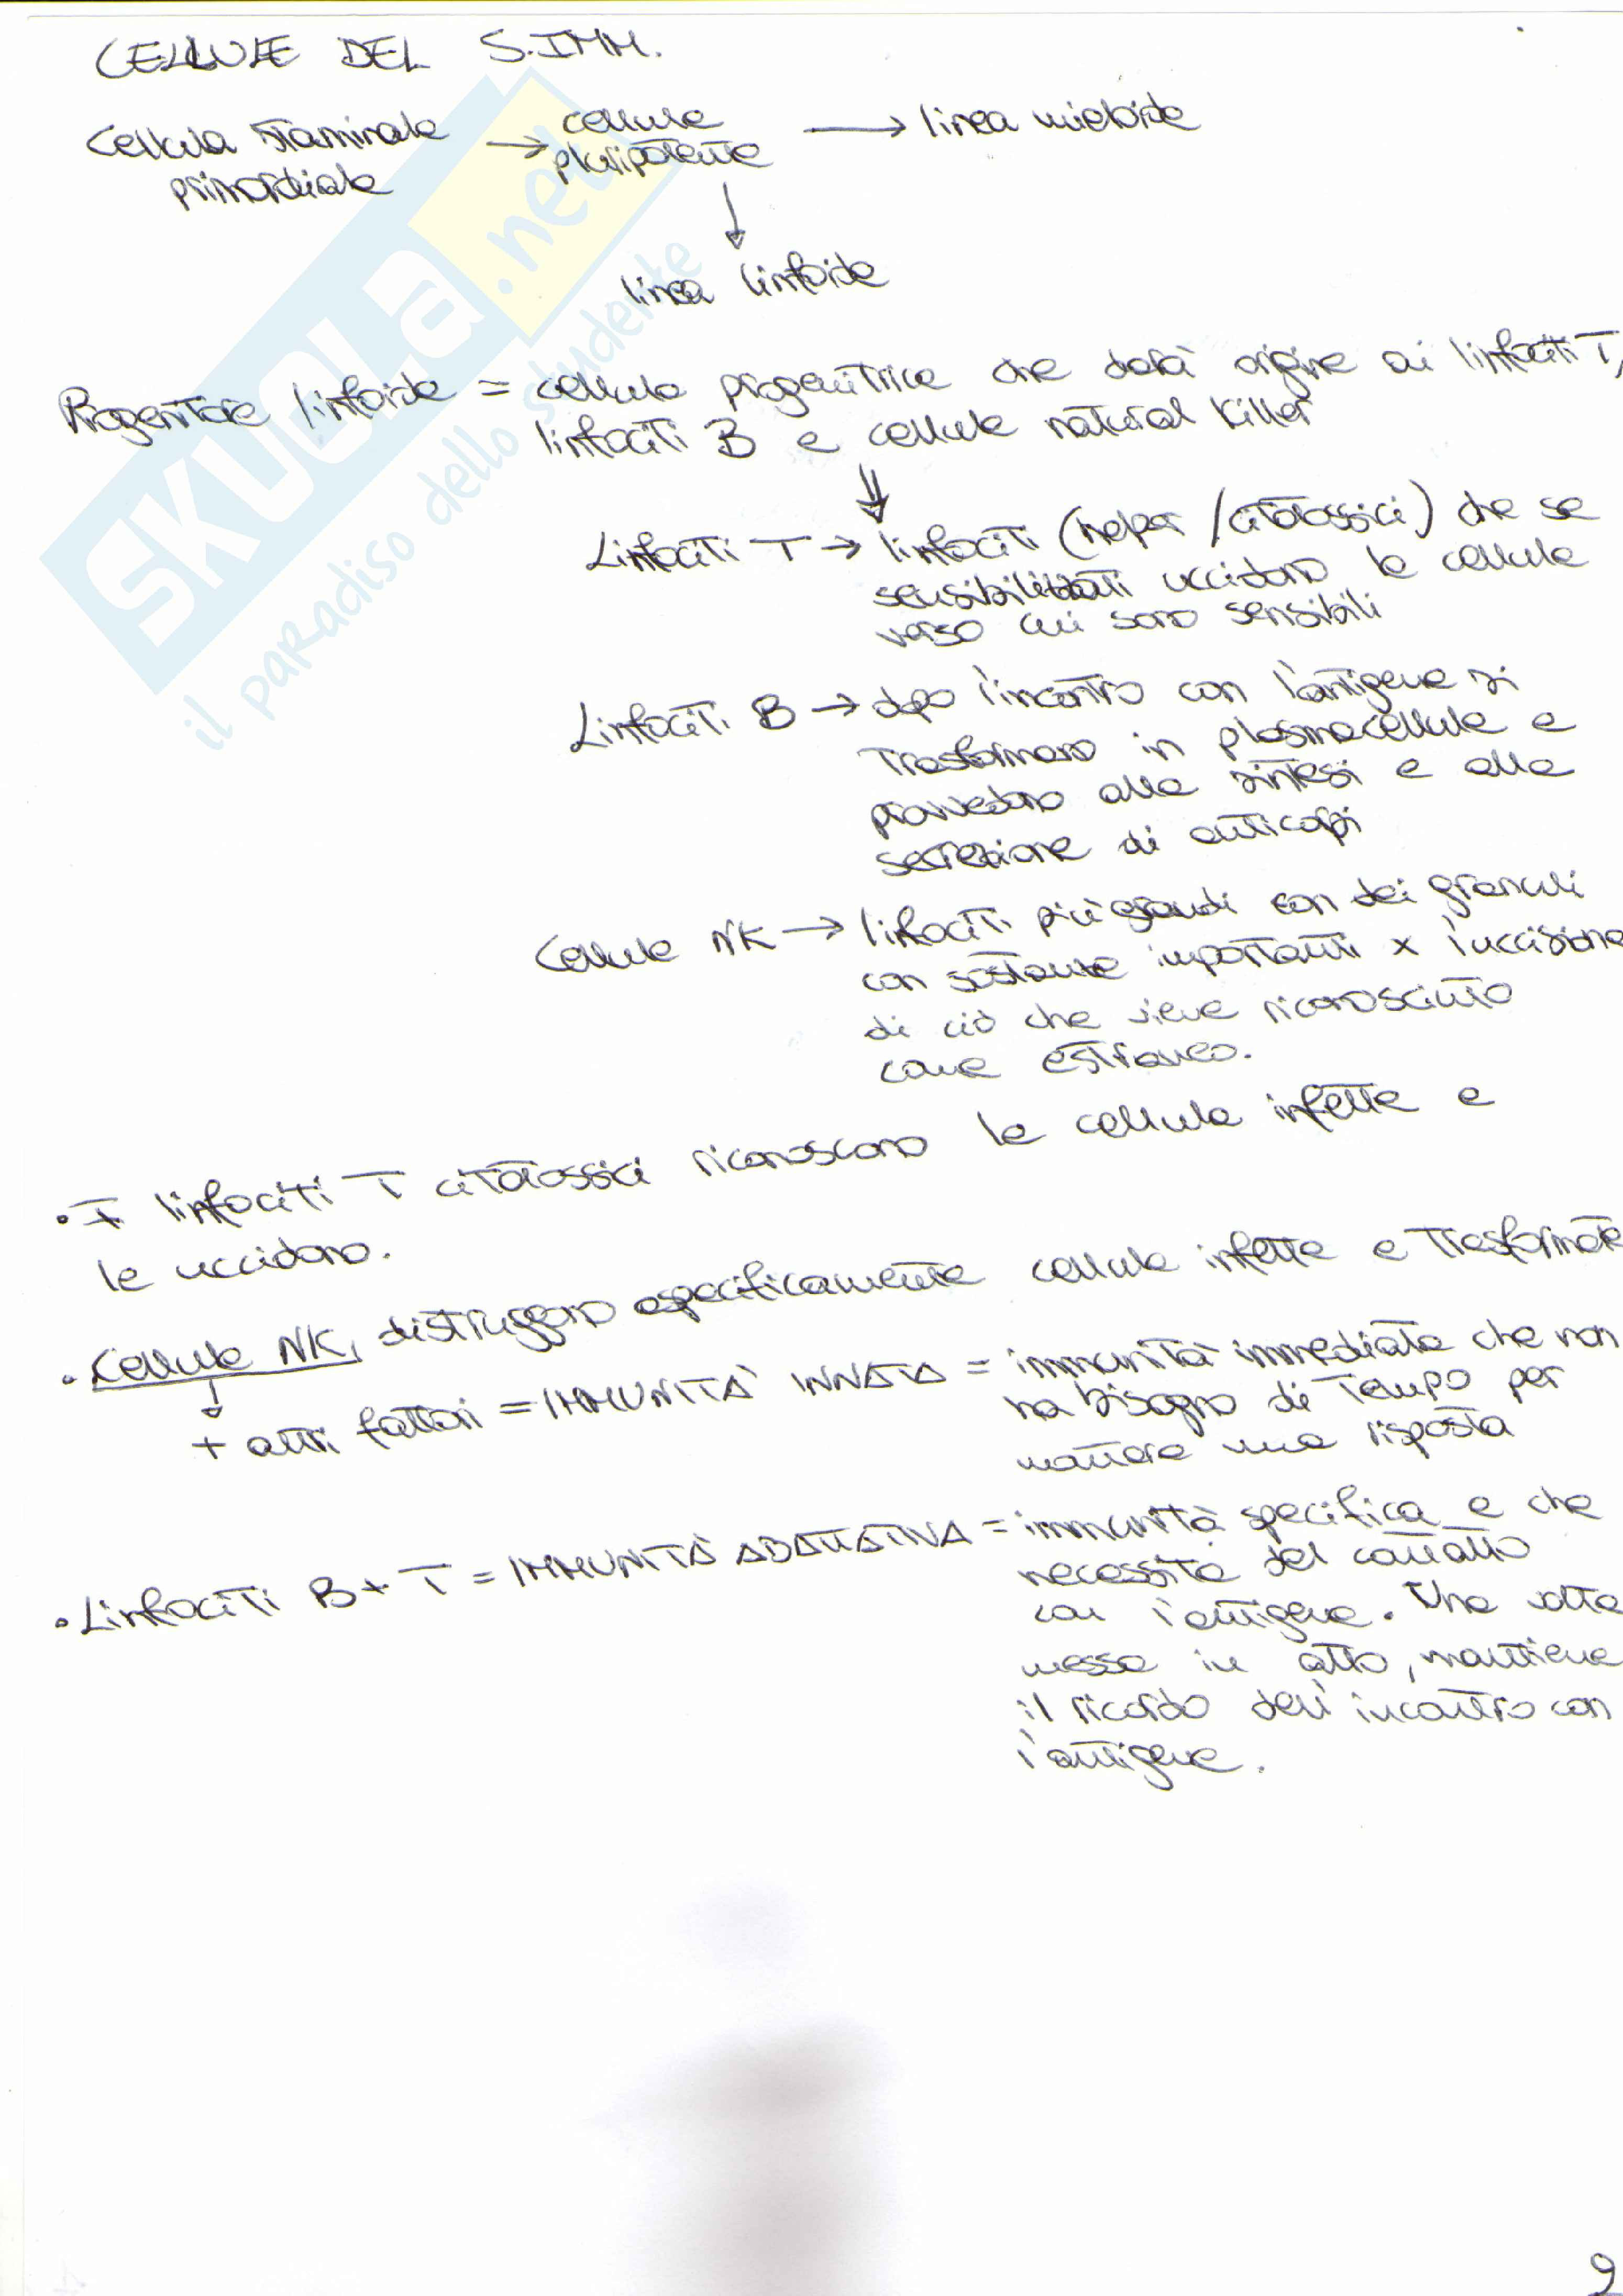 CELLULE DEL S.IMM.
Cellula staminale → cellule → linea mieloide
primordiale pluripotente
↓
linea linfoide
Progenitore linfoide = cellula progenitrice che darà origine ai linfociti T,
linfociti B e cellule natural killer
⇓
Linfociti T → linfociti (helper / citotossici) che se
sensibilizzati uccidono le cellule
verso cui sono sensibili
Linfociti B → dopo l'incontro con l'antigene si
trasformano in plasmacellule e
provvedono alla sintesi e alla
secrezione di anticorpi
Cellule NK → linfociti più grandi con dei granuli
con sostanze importanti x l'uccisione
di ciò che viene riconosciuto
come estraneo.
• I linfociti T citotossici riconoscono le cellule infette e
le uccidono.
• Cellule NK, distruggono aspecificamente cellule infette e trasformate
↓
+ altri fattori = IMMUNITÀ INNATA = immunità immediata che non
ha bisogno di tempo per
mettere una risposta
• Linfociti B + T = IMMUNITÀ ADATTATIVA = immunità specifica e che
necessita del contatto
con l'antigene. Una volta
messa in atto, mantiene
il ricordo dell'incontro con
l'antigene.
SKUOLA.net
il paradiso dello studente
9